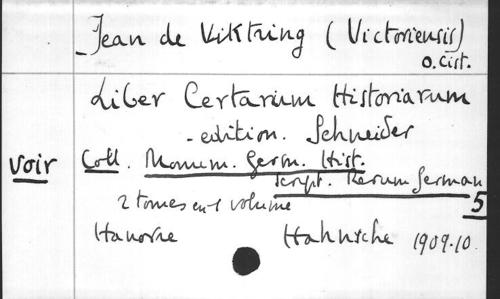 Jean de Viktring (Victoriensis)
O. Cist.
Liber Certarum Historiarum
- edition. Schneider
voir Coll. Monum. Germ. Hist.
Script. Rerum German
5
2 tomes en 1 volume
Hanovre Hahnsche 1909-10.